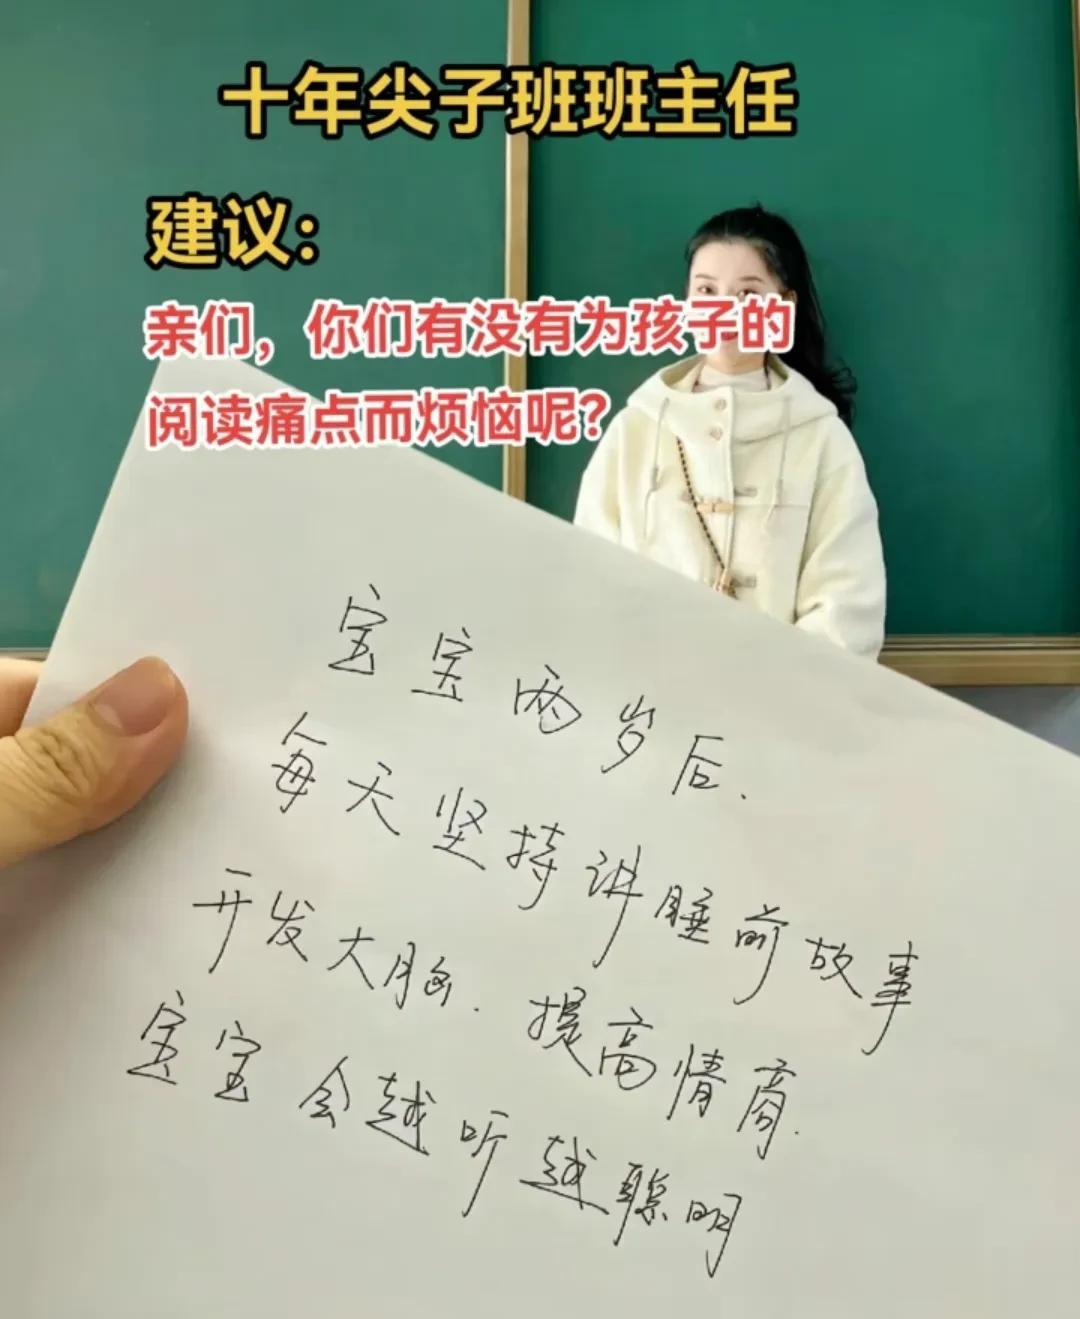 十年尖子班班主任
建议:
亲们，你们有没有为孩子的
阅读痛点而烦恼呢?
宝宝两岁后.
每天坚持讲睡前故事
开发大脑.提高情商.
宝宝会越听越聪明